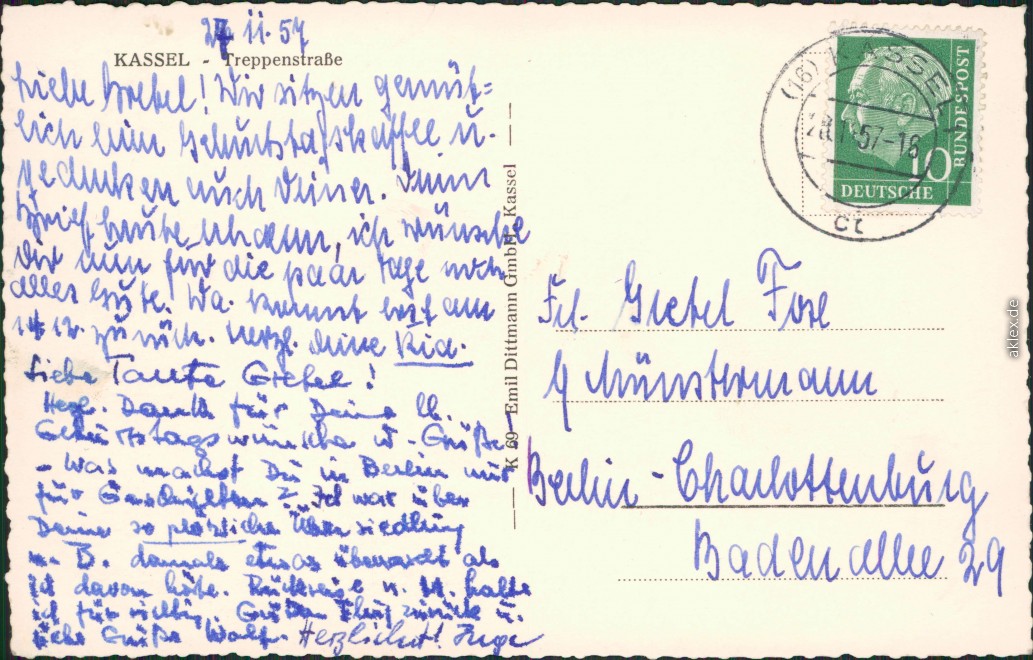 27.11.57
KASSEL - Treppenstraße
Liebe Gretel! Wir sitzen gemüt=
lich beim Geburtstagskaffee u.
gedenken auch Deiner. Dein
Brief heute ankam, ich wünsche
Dir nun für die paar Tage noch
alles Gute. Wa. kommt erst am
zurück. Herzl. Deine Ria.
Liebe Tante Gretel!
Herzl. Dank für Deine lb.
Geburtstagswünsche u. Grüße.
- Was machst Du in Berlin nur
für Geschichten? Ich war über
Deine so plötzliche Übersiedlung
n. B. damals etwas überrascht als
ich davon hörte. Rückreise n. M. halte
ich für richtig. zurück u.
liebe Grüße Wolf. Herzlichst! Inge
K 69 Emil Dittmann GmbH, Kassel
(16) KASSEL
28.11.57-16
ct
DEUTSCHE
BUNDESPOST
10
Frl. Gretel Fose
b/ Münstermann
Berlin-Charlottenburg
Badenallee 29
aklex.de